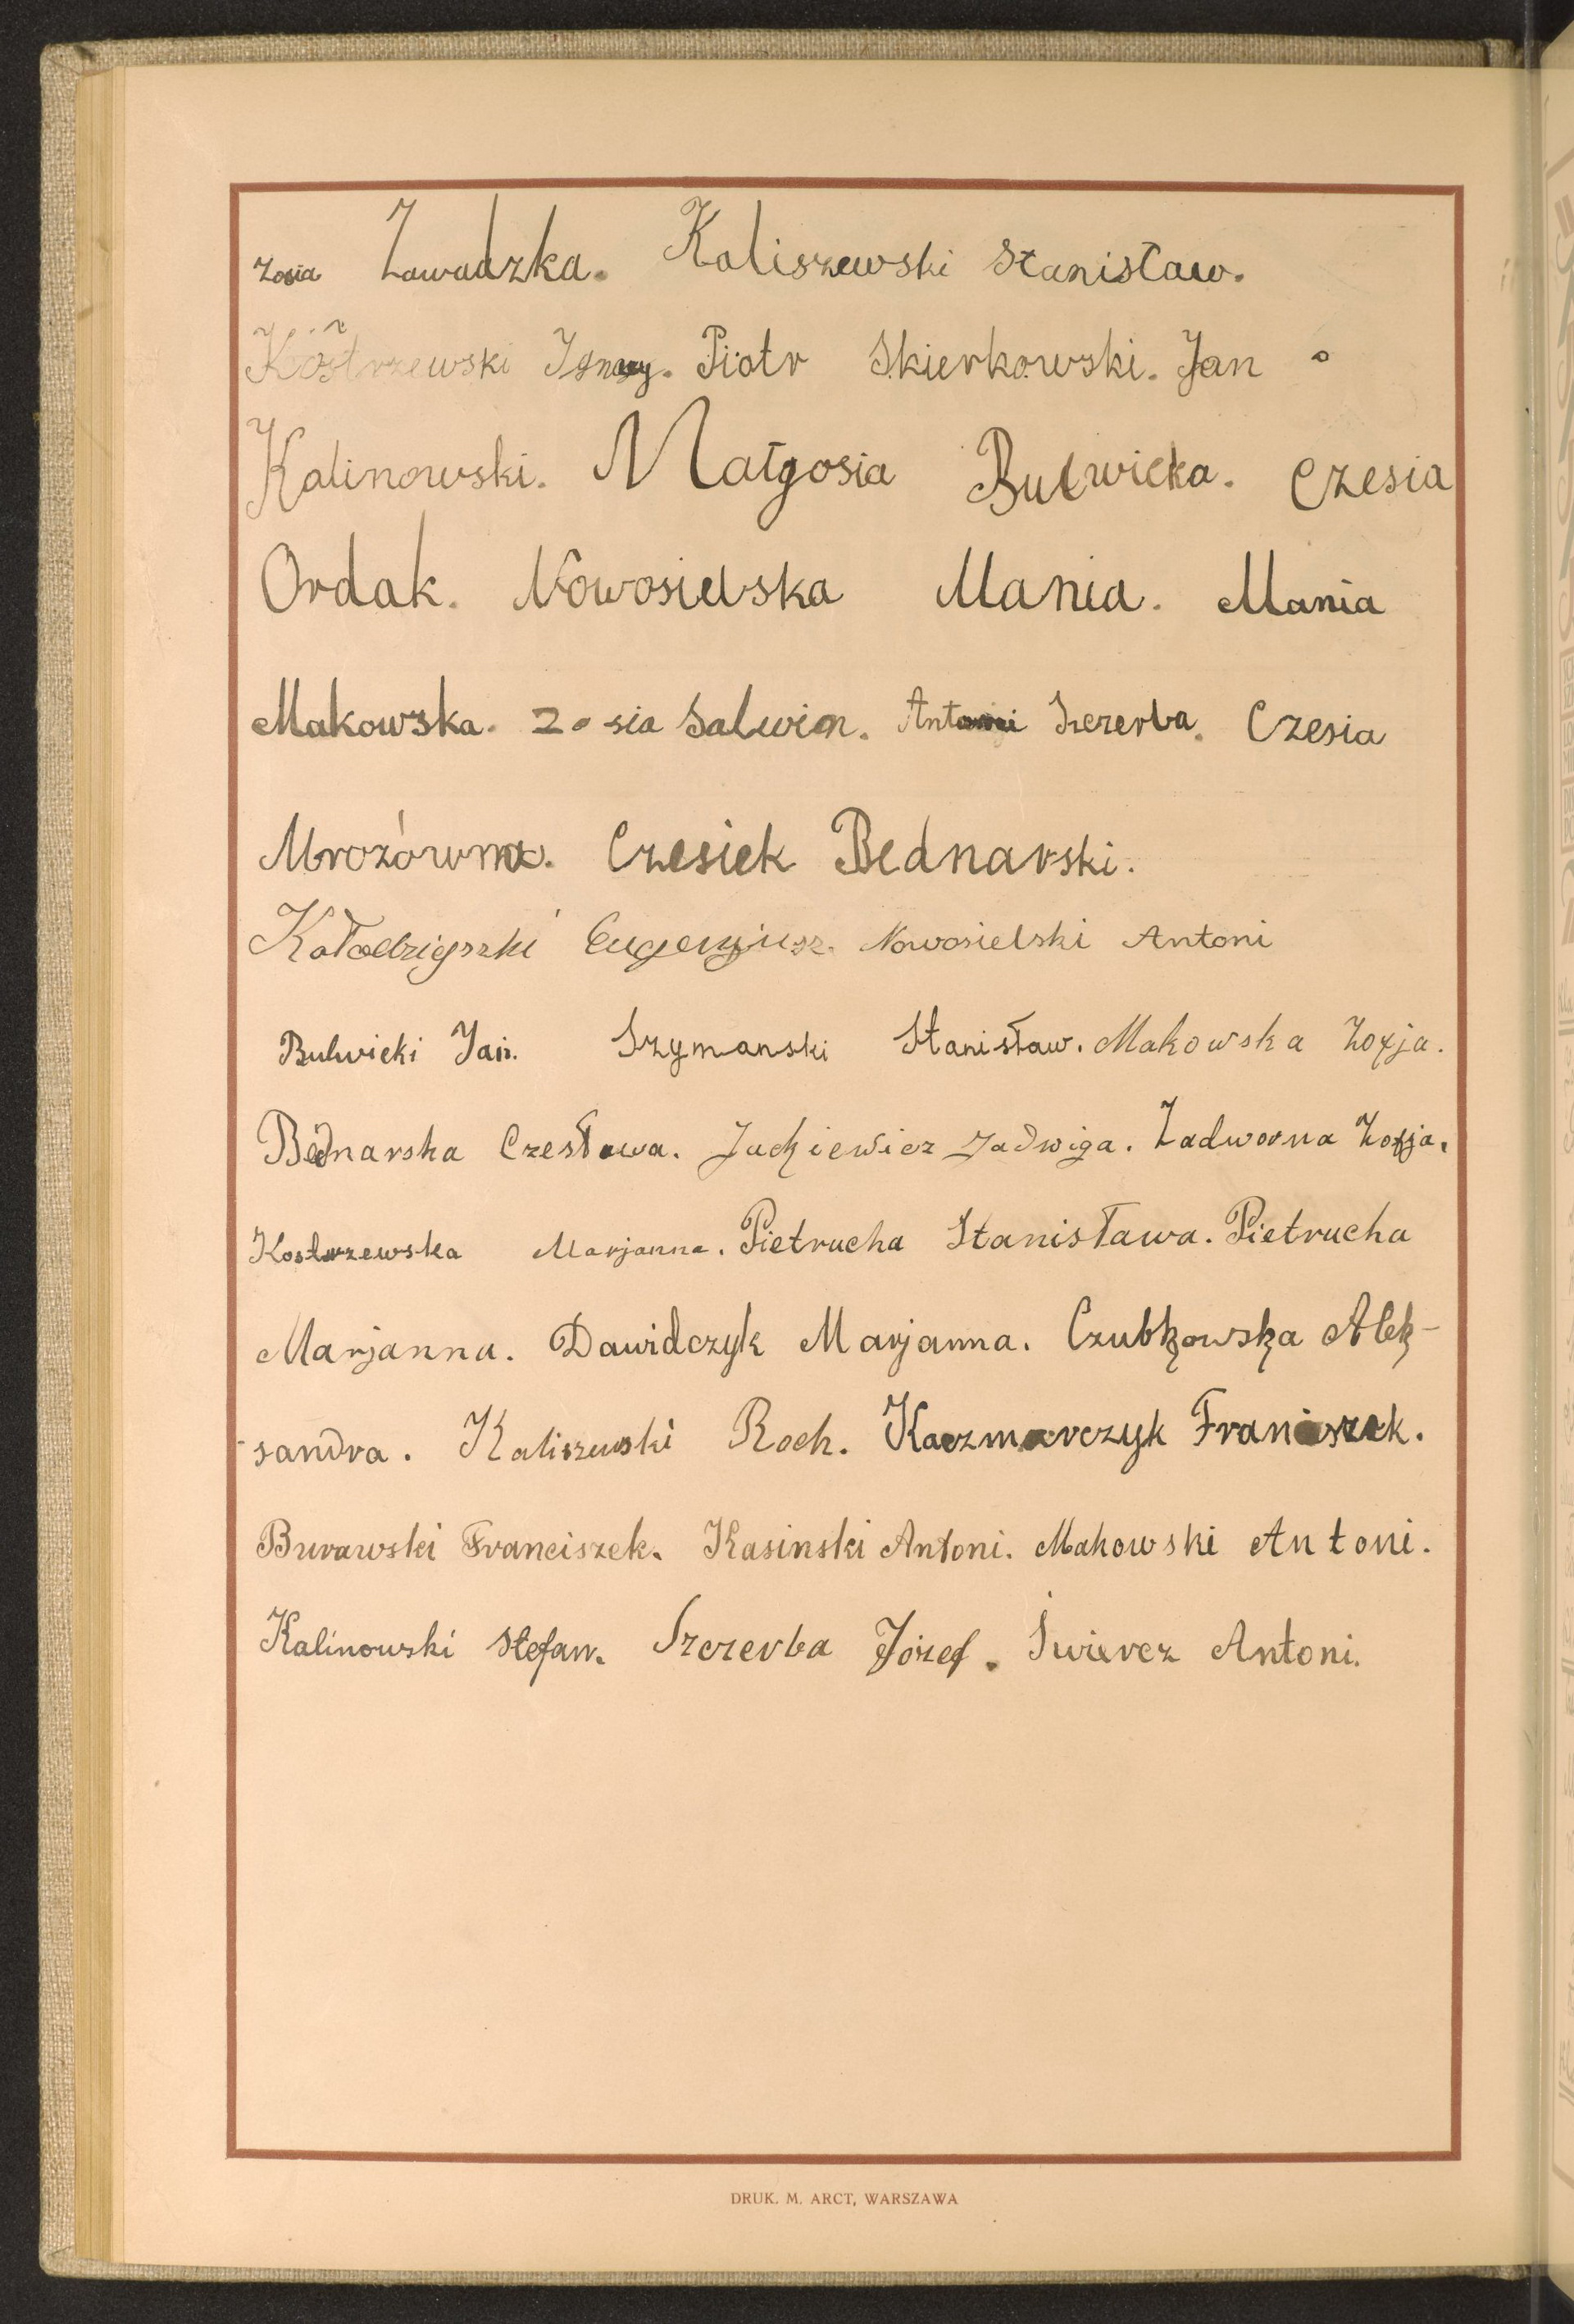 Zosia Zawadzka. Kaliszewski Stanisław.
Kostrzewski Ignacy. Piotr Skierkowski. Jan
Kalinowski. Małgosia Bulwicka. Czesia
Ordak. Nowosielska Mania. Mania
Makowska. Zosia Salwin. Antoni Szczerba. Czesia
Mrozówna. Czesiek Bednarski.
Eugenjusz. Nowosielski Antoni
Bulwicki Jan. Szymanski Stanisław. Makowska Zofja.
Bednarska Czesława. Jackiewicz Jadwiga. Zadworna Zofja.
Kostrzewska Marjanna. Pietrucha Stanisława. Pietrucha
Marjanna. Dawidczyk Marjanna. Czubkowska Alek-
-sandra. Kaliszewski Roch. Kaczmarczyk Franciszek.
Burawski Franciszek. Kasinski Antoni. Makowski Antoni.
Kalinowski Stefan. Szczerba Józef. Świercz Antoni.
DRUK. M. ARCT, WARSZAWA